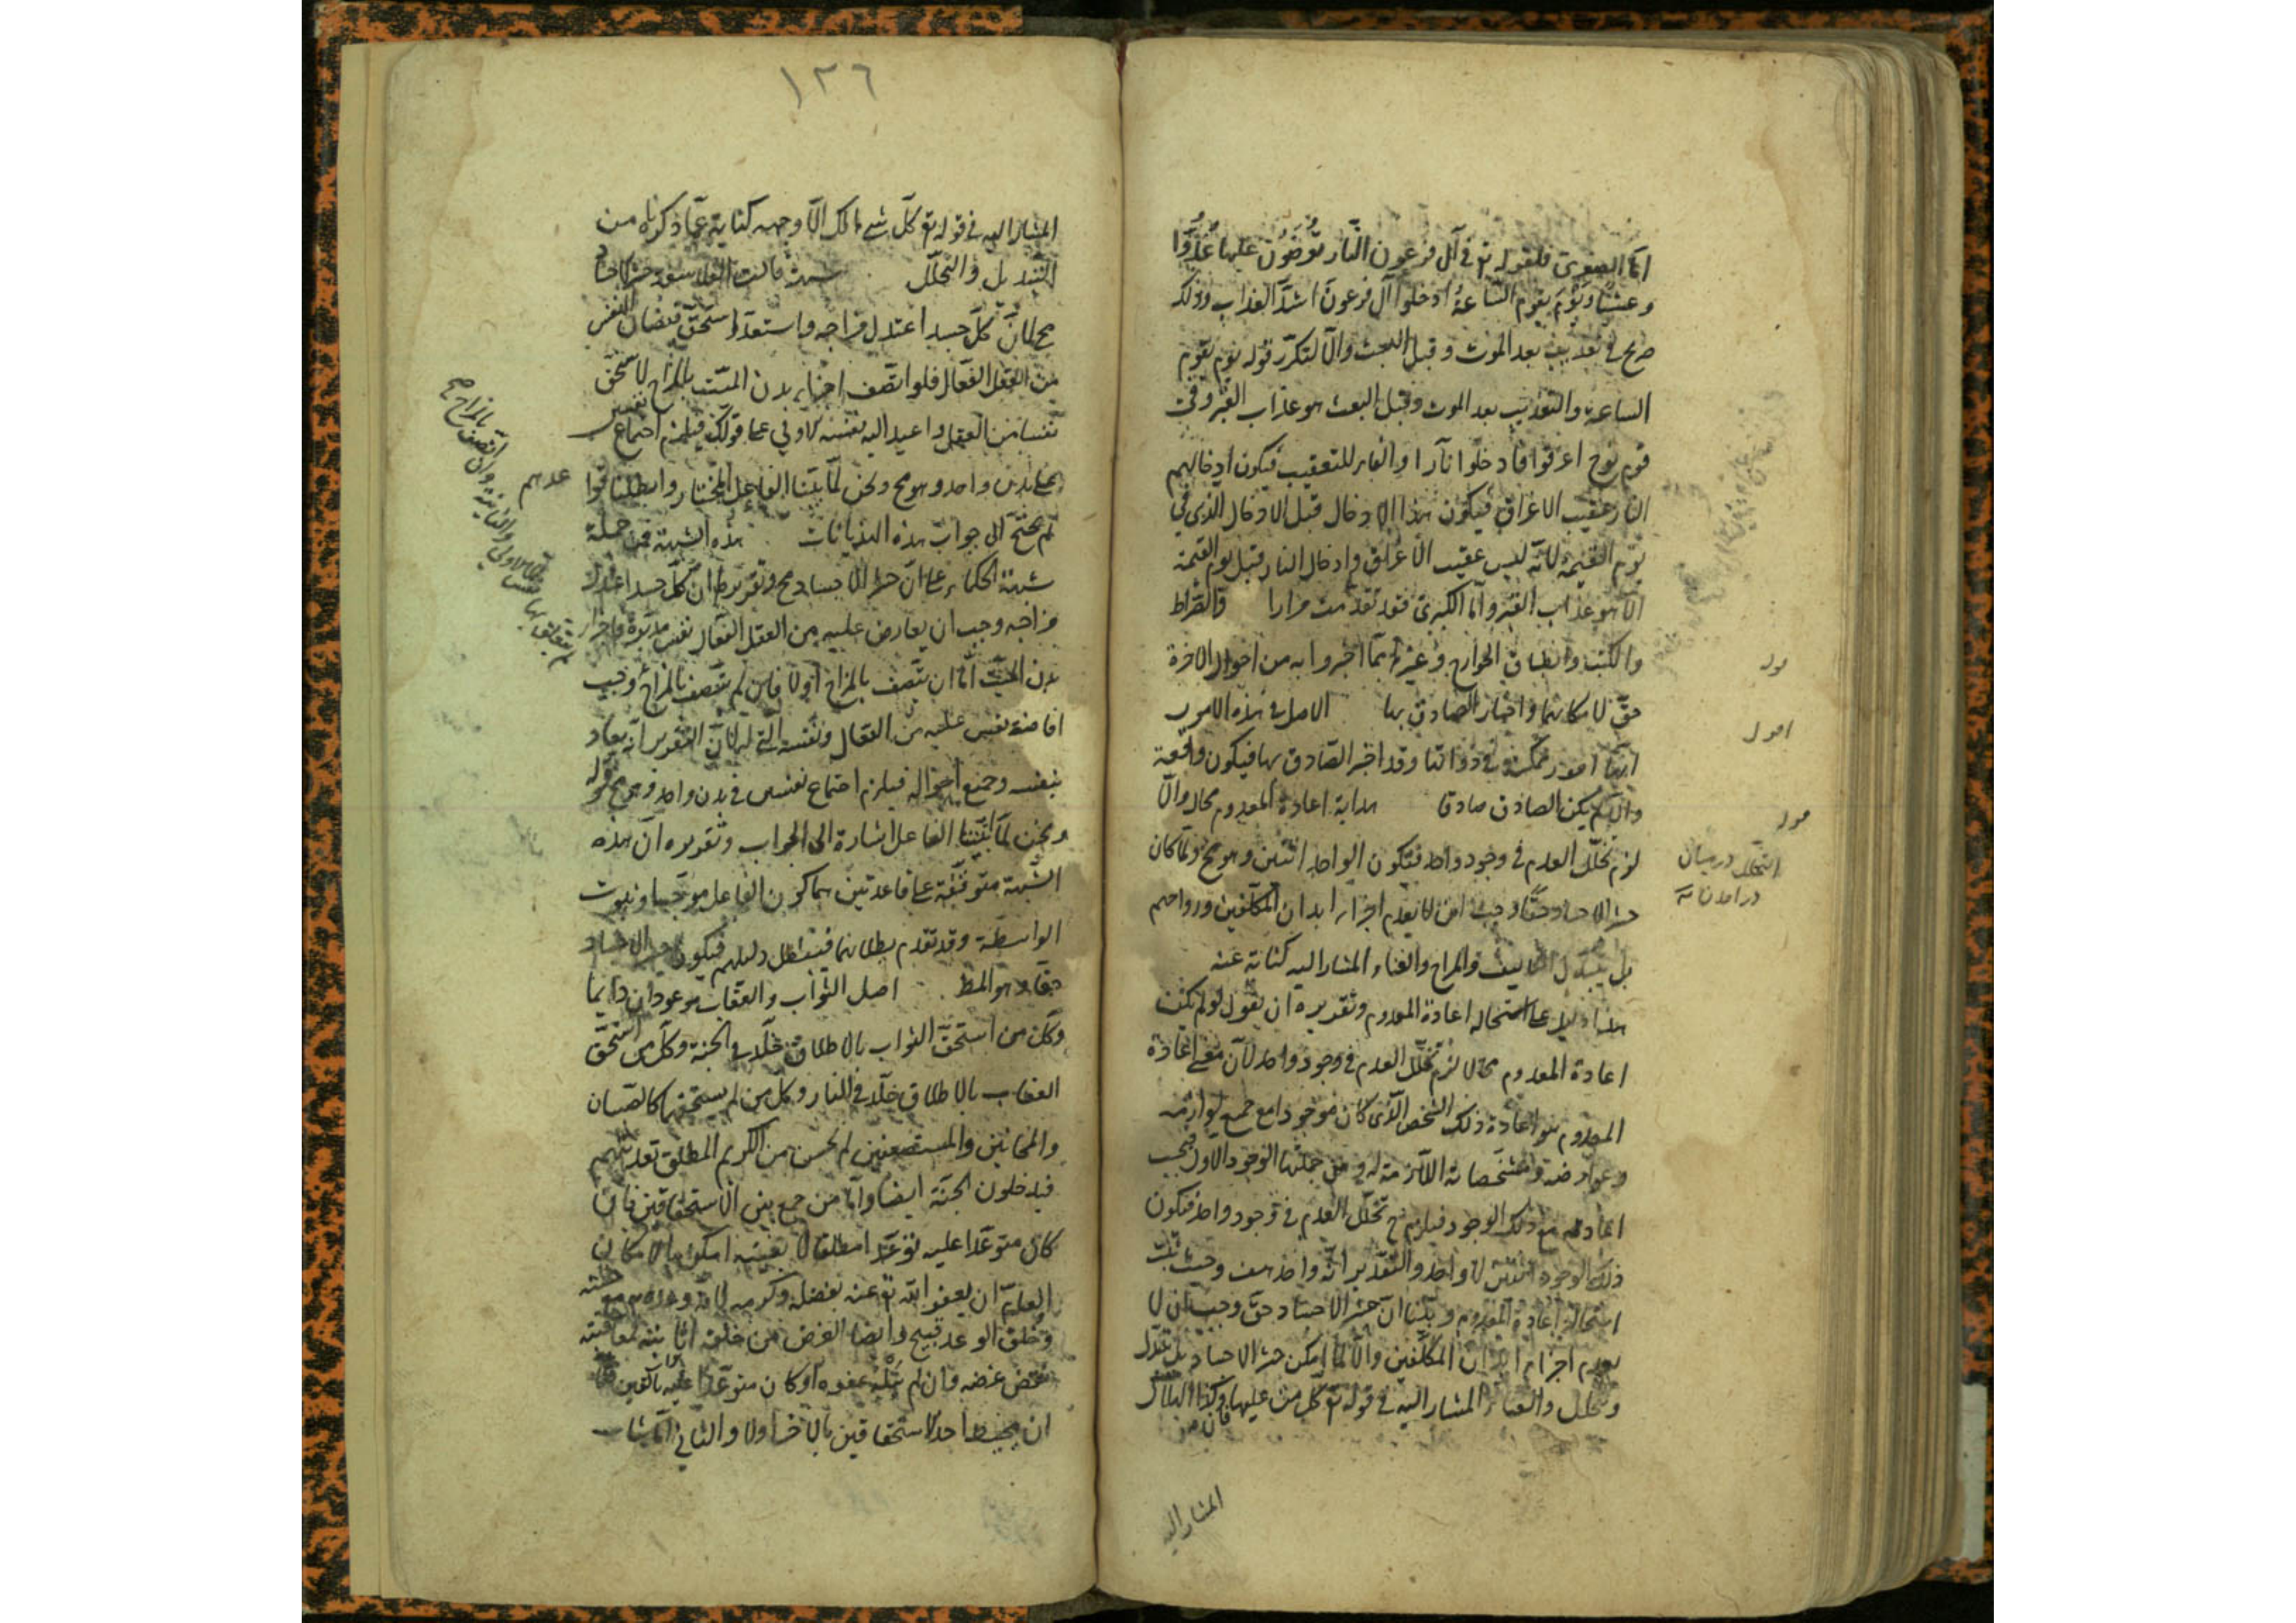 اما الصغرى فلقوله تع فى آل فرعون النار يعرضون عليها غدوا
وعشيا ويوم يقوم الساعة ادخلوا آل فرعون اشد العذاب وذلك
صريح فى تعذيب بعد الموت وقبل البعث والا لتكرر قوله يوم تقوم
الساعة والتعذيب بعد الموت وقبل البعث هو عذاب القبر وفى
قوم نوح اغرقوا فادخلوا نارا والفاء للتعقيب فيكون ادخالهم
النار عقيب الاغراق فيكون هذا الادخال قبل الادخال الذى فى
يوم القيمة لانه ليس عقيب الاغراق وادخال النار قبل يوم القيمة
الا هو عذاب القبر واما الكبرى فقد تقدمت مرارا والصراط
والكتب وانطاق الجوارح وغيرها مما اخبروا به من احوال الاخرة
حق لامكانها واخبار الصادق بها الاصل فى هذه الامور
انها امور ممكنة فى ذواتها وقد اخبر الصادق بها فيكون واقعة
والا لم يكن الصادق صادقا هداية اعادة المعدوم محال والا
لزم تخلل العدم فى وجود واحد فيكون الواحد اثنين وهو مح ولما كان
حشر الاجساد حقا وجب ان لا يعدم اجزاء ابدان المكلفين وارواحهم
بل يتبدل التاليف والمزاج والفناء المشار اليه كناية عنه
هذا دليل على استحالة اعادة المعدوم وتقريره ان يقول لو لم يكن
اعادة المعدوم محالا لزم تخلل العدم فى وجود واحد لان معنى اعادة
المعدوم هو اعادة ذلك الشخص الذى كان موجودا مع جميع لوازمه
وعوارضه ومشخصاته اللازمة له ومن جملتها الوجود الاول فيجب
اعادته مع ذلك الوجود فيلزم ح تخلل العدم فى وجود واحد فيكون
ذلك الوجود اثنين لا واحد والتقدير انه واحد هف وحيث ثبت
استحالة اعادة المعدوم وبينا ان حشر الاجساد حق وجب ان لا
يعدم اجزاء ابدان المكلفين والا لما امكن حشر الاجساد بل تبدل
وتحلل والفناء المشار اليه فى قوله تع كل من عليها فان وكذا الهلاك
المشار اليه
التخلل درميان
درآمدن
١٢٦
المشار اليه فى قوله تع كل شئ هالك الا وجهه كناية عما ذكرناه من
التبديل والتحلل شبهة قالت الفلاسفة حشر الاجساد
مح لان كل جسد اعتدل مزاجه واستعد استحق فيضان النفس
من العقل الفعال فلو اتصف اجزاء بدن الميت بالمزاج لاستحق
نفسا من العقل واعيد اليه نفسه الاولى على قولكم فيلزم اجتماع نفسين
على بدن واحد وهو مح ونحن لما بينا الفاعل المختار وابطلنا قواعدهم
لم نحتج الى جواب هذه الهذيانات هذه الشبهة من جملة
شبهة الحكماء على ان حشر الاجساد مح وتقريرها ان كل جسد اعتدل
مزاجه وجب ان يفاض عليه من العقل الفعال نفس مدبرة واجزاء
بدن الميت اما ان تتصف بالمزاج اولا فان لم تتصف بالمزاج وجب
افاضة نفس عليه من الفعال ونفسه التى له لان التقدير انه يعاد
بنفسه وجميع احواله فيلزم اجتماع نفسين فى بدن واحد وهو مح قوله
ونحن لما اثبتنا الفاعل اشارة الى الجواب وتقريره ان هذه
الشبهة متوقفة على قاعدتين هما كون الفاعل موجبا وثبوت
الواسطة وقد تقدم بطلانهما فيبطل دليلهم فيكون حشر الاجساد
حقا وهو المط اصل الثواب والعقاب موعودان دايما
وكل من استحق الثواب بالاطلاق خلد فى الجنة وكل من استحق
العقاب بالاطلاق خلد فى النار وكل من لم يستحقهما كالصبيان
والمجانين والمستضعفين لم يحسن من الكريم المطلق تعذيبهم
فيدخلون الجنة ايضا واما من جمع بين الاستحقاقين فان
كان متوعدا عليه توعدا مطلقا لا بعينه امكن بالامكان
العام ان يعفو الله تع عنه بفضله وكرمه لانه وعده مع حسنه
وخلف الوعد قبيح وايضا الغرض من خلقه اثابته فمعاقبته
نقض غرضه وان لم ينله عفوه او كان متوعدا عليه بالتعيين فاما
ان يحبط احد الاستحقاقين بالاخر اولا والثانى اما ان يثاب